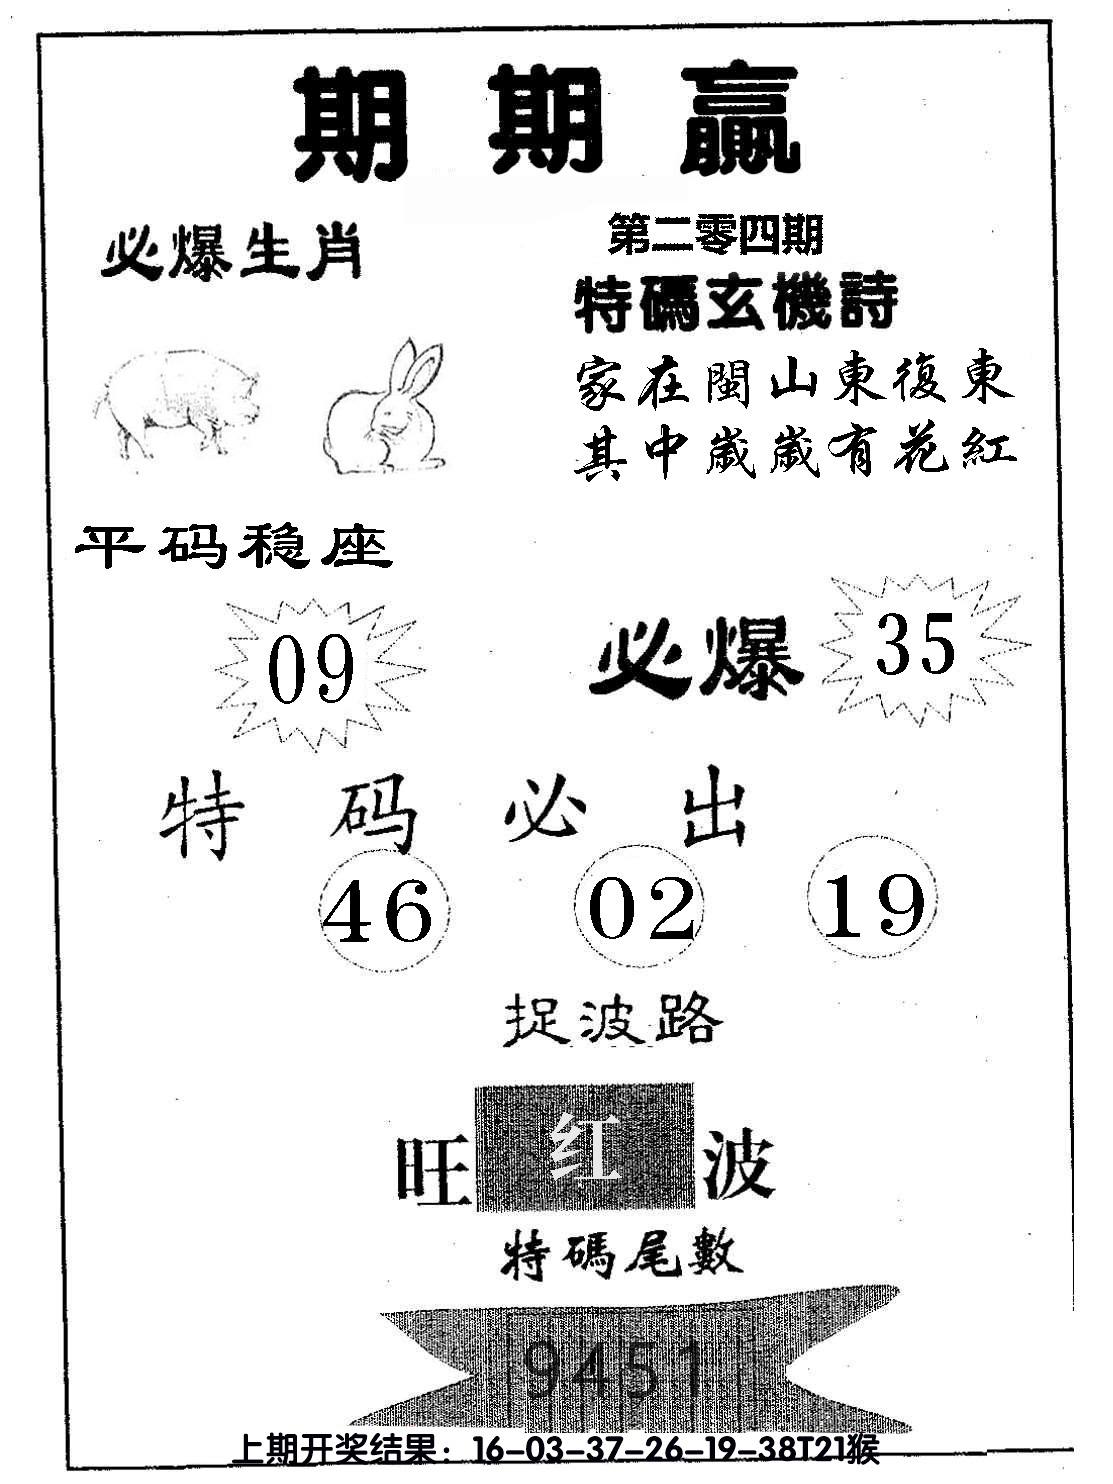 期期赢
必爆生肖
第二零四期
特碼玄機詩
家在閩山東復東
其中歲歲有花紅
平码稳座
09
必爆
35
特码必出
46 02 19
捉波路
旺红波
特碼尾數
9451
上期开奖结果：16-03-37-26-19-38T21猴